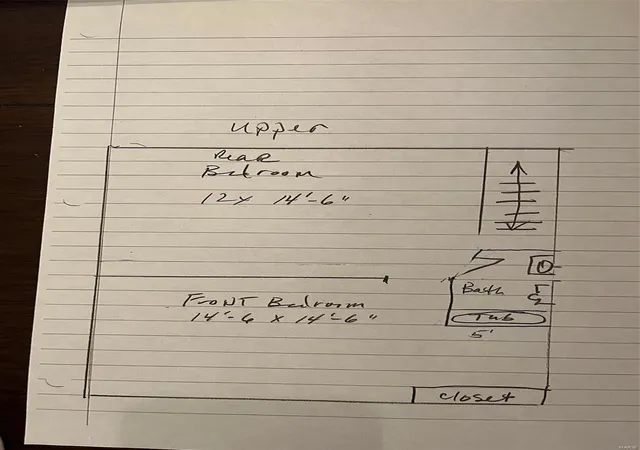 Upper
Rear
Bedroom
12 x 14'-6"
Front Bedroom
14'-6 x 14'-6"
Bath
Tub
5'
closet